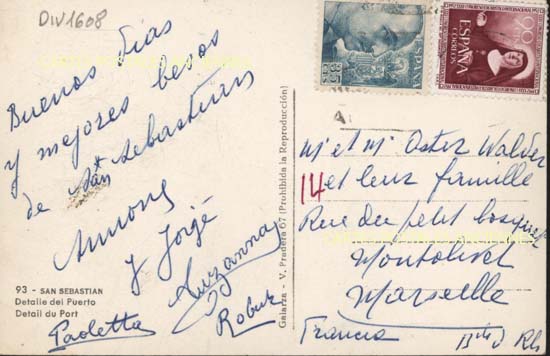 DIV1608
Buenos Dias
y mejores besos
de San Sebastian
y Jorgé
Suzanna
Paoletta
Robur
93 - SAN SEBASTIAN
Detalle del Puerto
Detail du Port
Galarza - V. Pradera 67 (Prohibida la Reproducción)
35 CTS
ESPAÑA
90
ESPAÑA
CORREOS
M et M Oster Walder
14 et leur famille
Rue du petit bosquet
Montolivet
Marseille
Francia
B Rh